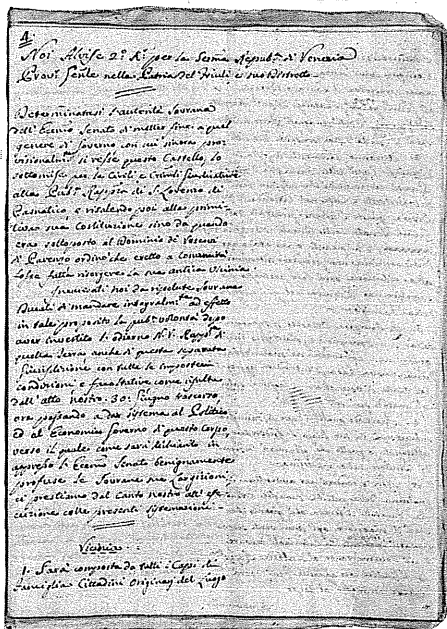 4
Noi Alvise 2° K.r per la Serma Republ.a di Venezia
Prov.r Genle nella Patria del Friuli e suo Distretto
Determinatasi l'autorità Sovrana
dell'Eccmo Senato di meglio a quel
genere di Governo con cui sinora prov-
visionalmte si resse questo Castello, lo
sottomise per le Civili e Crimli Giudicature
alla Pub.a di S. Lorenzo di
Pasnatico, e risalendo poi alla primi-
tiva sua Costituzione sino da quando
era sottoposto al Dominio di Vescovi
di Parenzo ordinò che eretto a Comunità
fosse fatta risorgere la sua antica Vicinia
noi da risolute Sovrane
Ducali di mandare integralmte ad effetto
in tale proposito la pub.a volontà dopo
aver investito l'odierno N. V. Rapp.te di
quella Terra anche di questa separata
Giurisdizione con tutte le
condizioni e facoltative come risulta
dall'atto nostro 30. Giugno trascorso,
ora passando a dar sistema al Politico
ed al Economico Governo di questo Corpo,
verso il quale come sarà in
appresso l'Eccmo Senato benignamente
profuse le Sovrane sue
ci prestiamo dal Canto nostro all'ese-
cuzione colle presenti sistemazioni.
Vicinia
1. Sarà composta da tutti i Cappi di
Famiglia Cittadini Originarj del Luogo